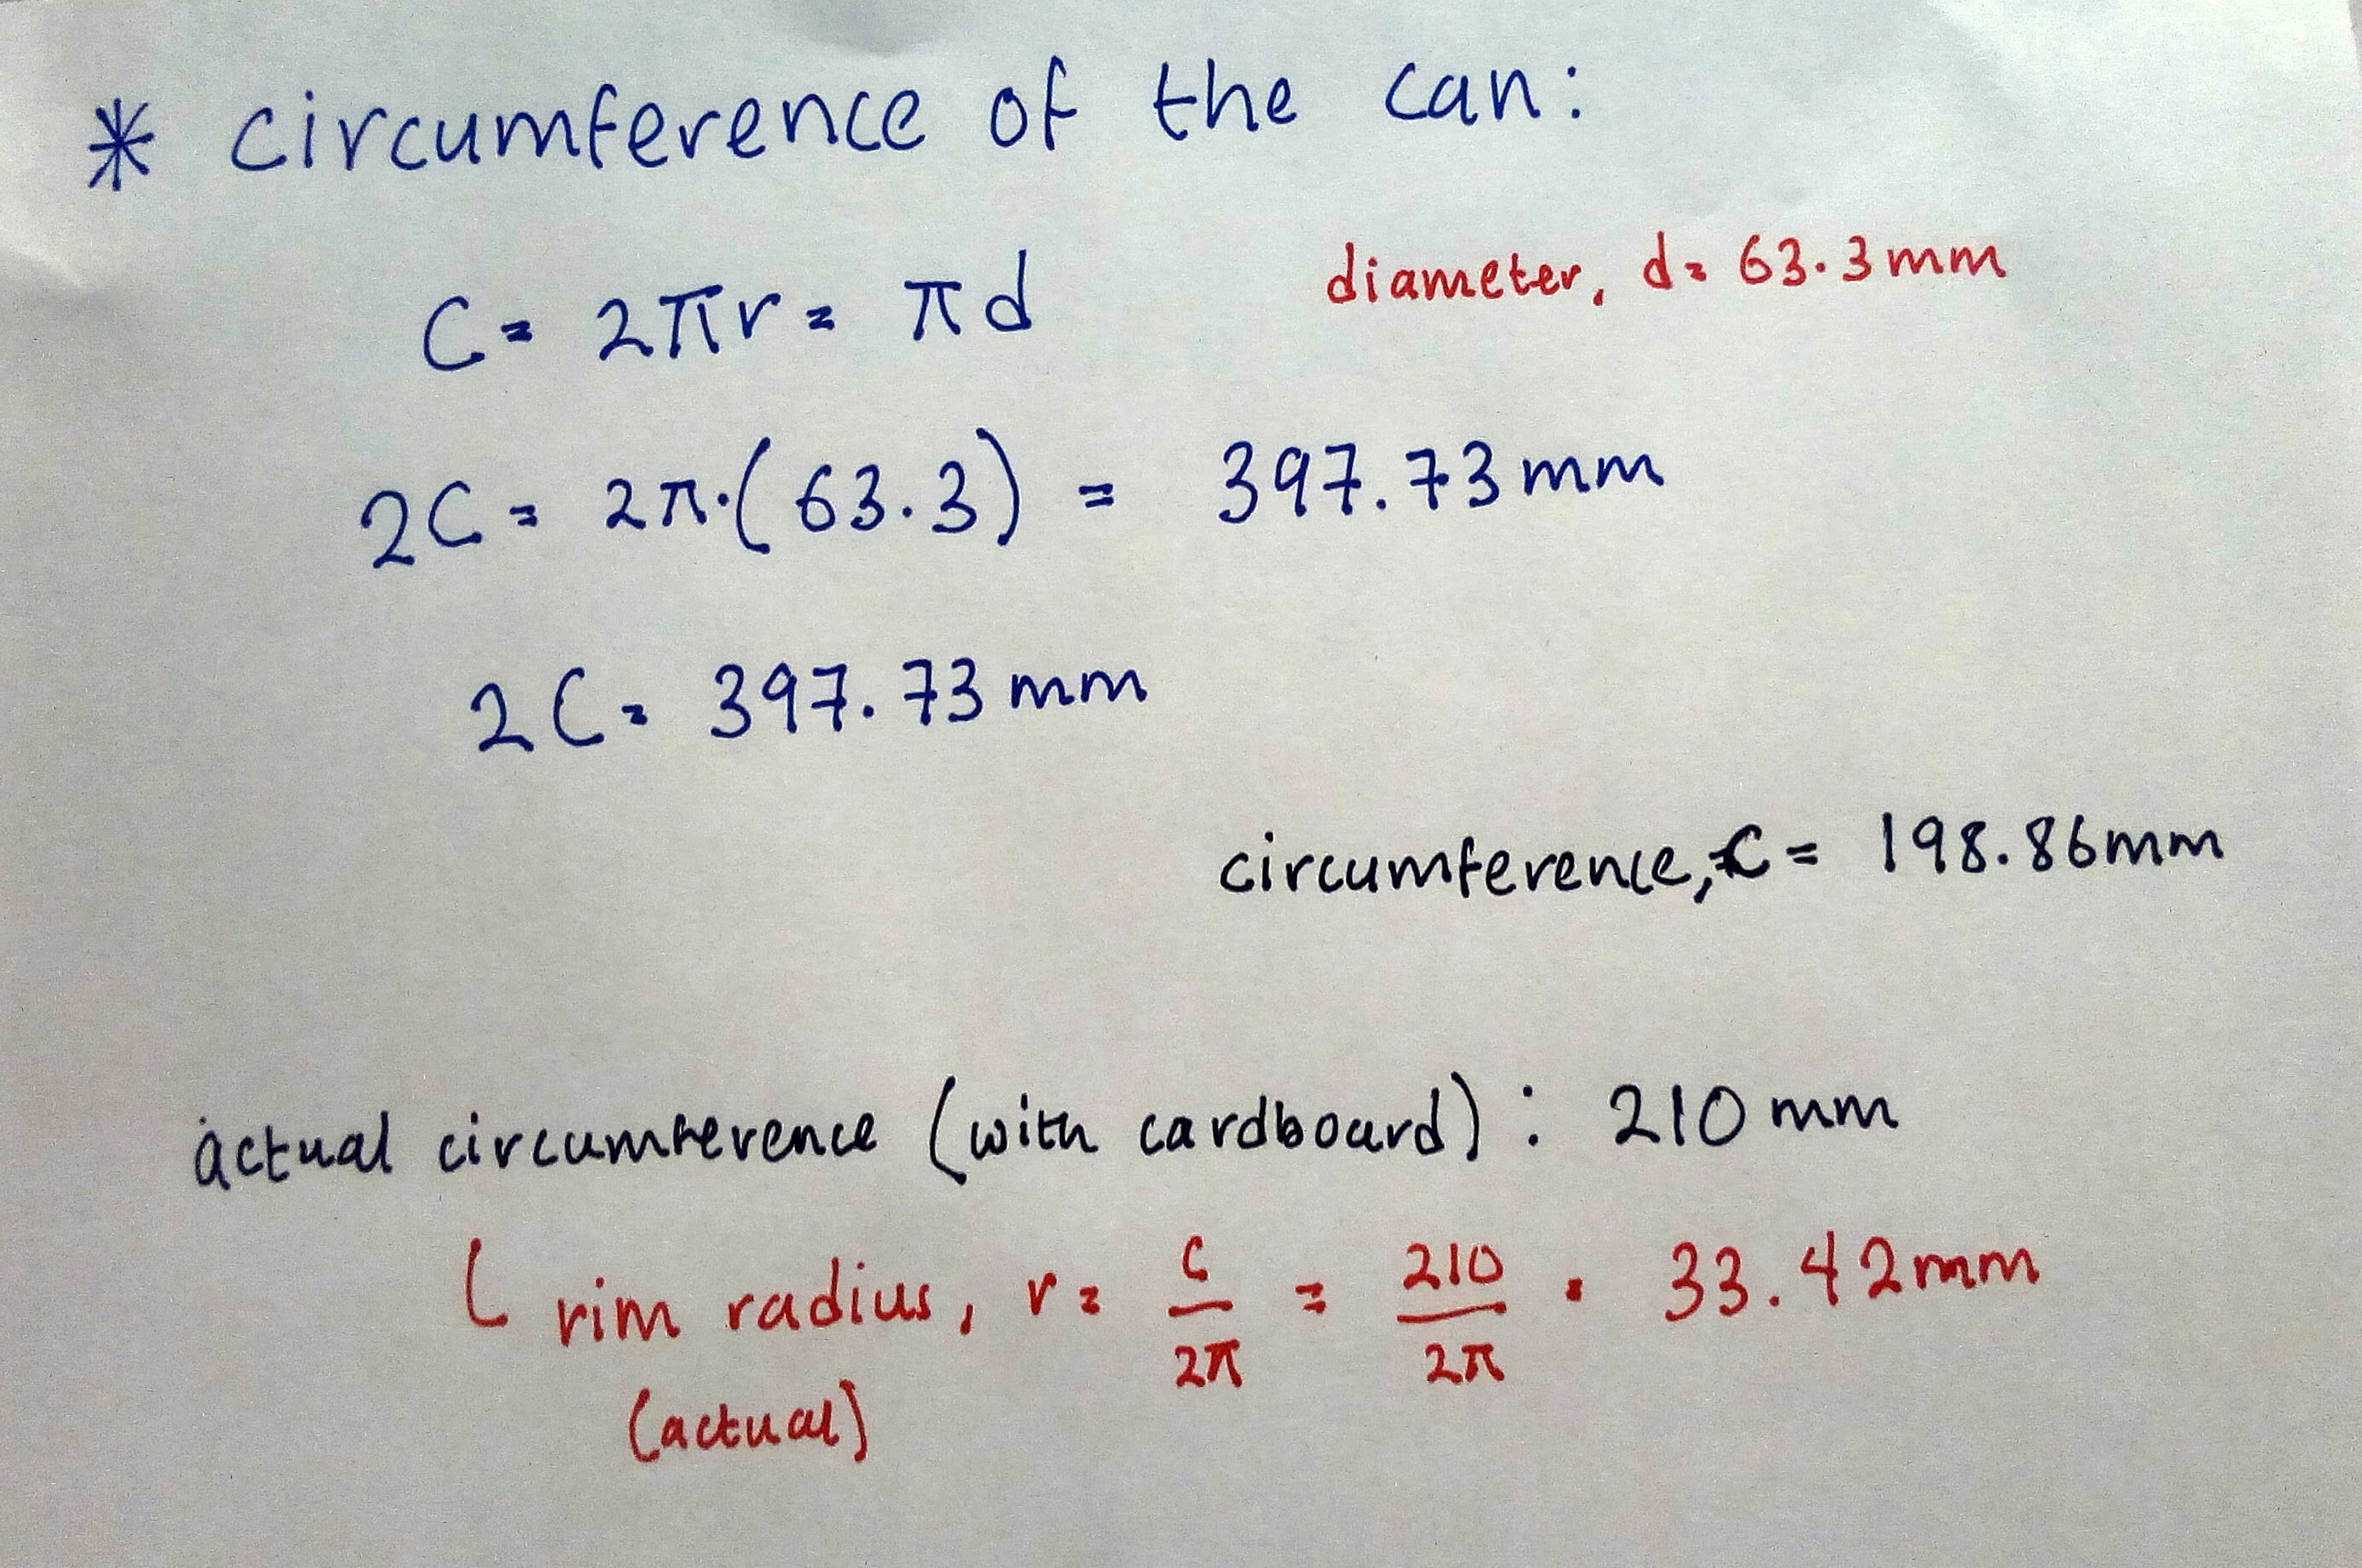 * circumference of the can:
C = 2πr = πd
diameter, d = 63.3mm
2C = 2π·(63.3) = 397.73mm
2C = 397.73mm
circumference, C = 198.86mm
actual circumference (with cardboard) : 210mm
rim radius, r = C/2π = 210/2π = 33.42mm
(actual)